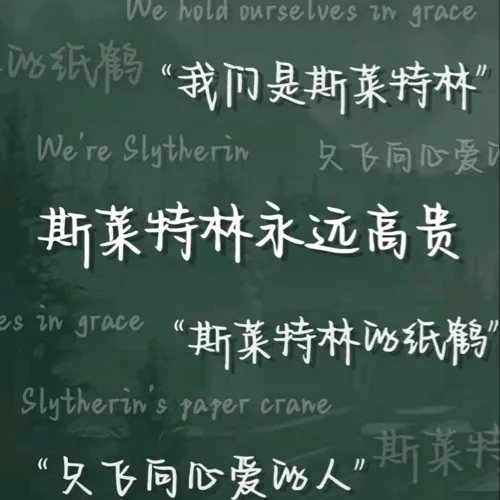 We hold ourselves in grace
的纸鹤
“我们是斯莱特林”
We're Slytherin
只飞向心爱的
斯莱特林永远高贵
es in grace
“斯莱特林的纸鹤”
Slytherin's paper crane
斯莱特
“只飞向心爱的人”